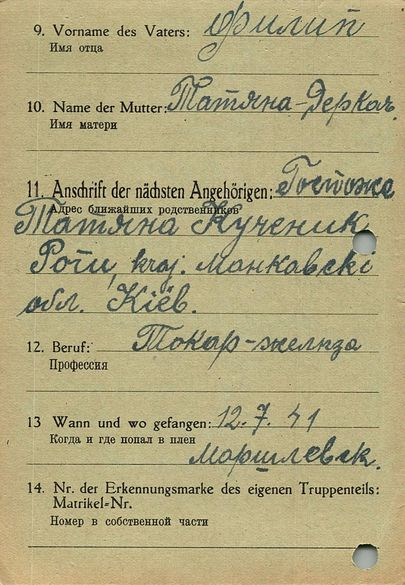 9. Vorname des Vaters: Филип
Имя отца
10. Name der Mutter: Татяна-Деркач
Имя матери
11. Anschrift der nächsten Angehörigen:
Адрес ближайших родственников
Татяна Кученик
Роги, kraj. Манкавскі
обл. Кіёв.
12. Beruf: Токар-желиза
Профессия
13 Wann und wo gefangen: 12.7.41
Когда и где попал в плен
14. Nr. der Erkennungsmarke des eigenen Truppenteils:
Matrikel=Nr.
Номер в собственной части